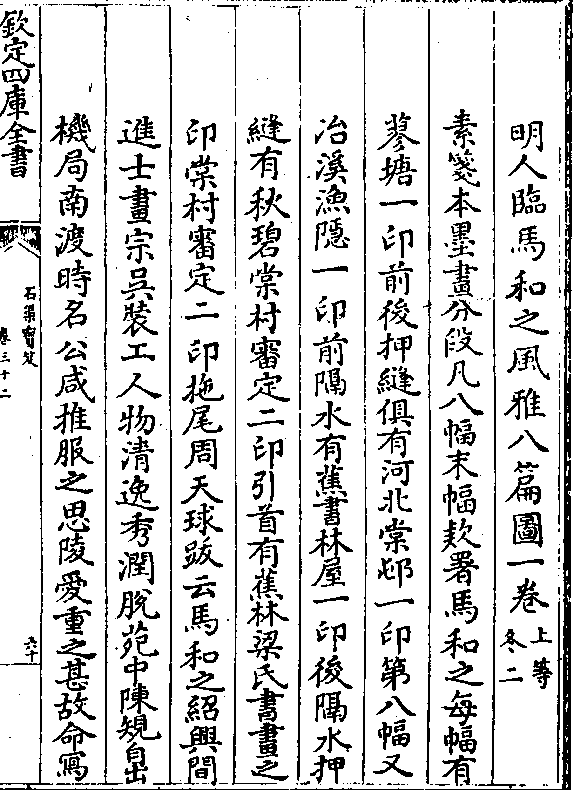 明人臨馬和之風雅八篇圖一卷 上等 冬二
素箋本墨畫分段凡八幅末幅欵署馬和之每幅有
蓼塘一印前後押縫俱有河北棠邨一印第八幅又
冶溪漁隱一印前隔水有蕉書林屋一印後隔水押
縫有秋碧棠村審定二印引首有蕉林梁氏書畫之
印棠村審定二印拖尾周天球跋云馬和之紹興間
進士畫宗吳裝工人物清逸秀潤脫苑中陳䂓自出
機局南渡時名公咸推服之思陵愛重之甚故命寫
欽定四庫全書
石渠寶笈
卷三十二
六十